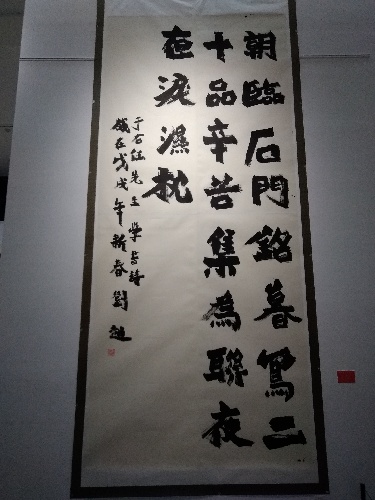 朝臨石門銘暮寫二
十品辛苦集為聯夜
夜淚濕枕
于右任先生學書詩
戊戌年新春劉